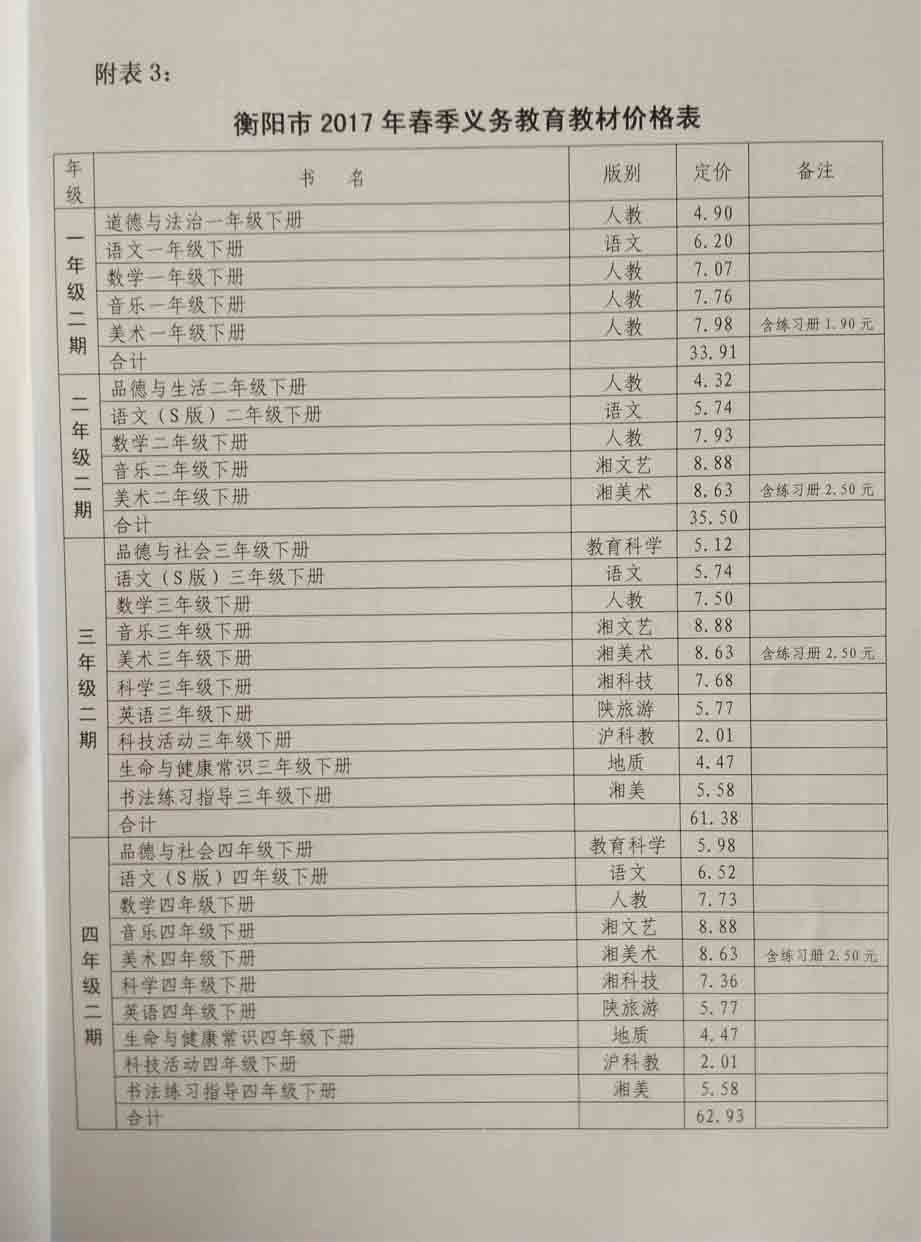 附表 3：
衡阳市 2017 年春季义务教育教材价格表
年级 书 名 版别 定价 备注
一年级二期
道德与法治一年级下册 人教 4.90
语文一年级下册 语文 6.20
数学一年级下册 人教 7.07
音乐一年级下册 人教 7.76
美术一年级下册 人教 7.98 含练习册 1.90 元
合计 33.91
二年级二期
品德与生活二年级下册 人教 4.32
语文（S 版）二年级下册 语文 5.74
数学二年级下册 人教 7.93
音乐二年级下册 湘文艺 8.88
美术二年级下册 湘美术 8.63 含练习册 2.50 元
合计 35.50
三年级二期
品德与社会三年级下册 教育科学 5.12
语文（S 版）三年级下册 语文 5.74
数学三年级下册 人教 7.50
音乐三年级下册 湘文艺 8.88
美术三年级下册 湘美术 8.63 含练习册 2.50 元
科学三年级下册 湘科技 7.68
英语三年级下册 陕旅游 5.77
科技活动三年级下册 沪科教 2.01
生命与健康常识三年级下册 地质 4.47
书法练习指导三年级下册 湘美 5.58
合计 61.38
四年级二期
品德与社会四年级下册 教育科学 5.98
语文（S 版）四年级下册 语文 6.52
数学四年级下册 人教 7.73
音乐四年级下册 湘文艺 8.88
美术四年级下册 湘美术 8.63 含练习册 2.50 元
科学四年级下册 湘科技 7.36
英语四年级下册 陕旅游 5.77
生命与健康常识四年级下册 地质 4.47
科技活动四年级下册 沪科教 2.01
书法练习指导四年级下册 湘美 5.58
合计 62.93